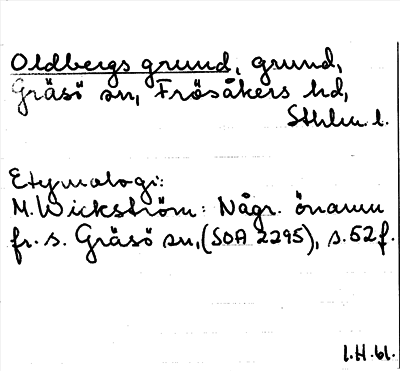 Oldbergs grund, grund,
Gräsö sn, Frösåkers hd,
Sthlm l.
Etymologi:
M. Wickström: Någr. önamn
fr. s. Gräsö sn, (SOA 2295), s. 52 f.
l.H.61.